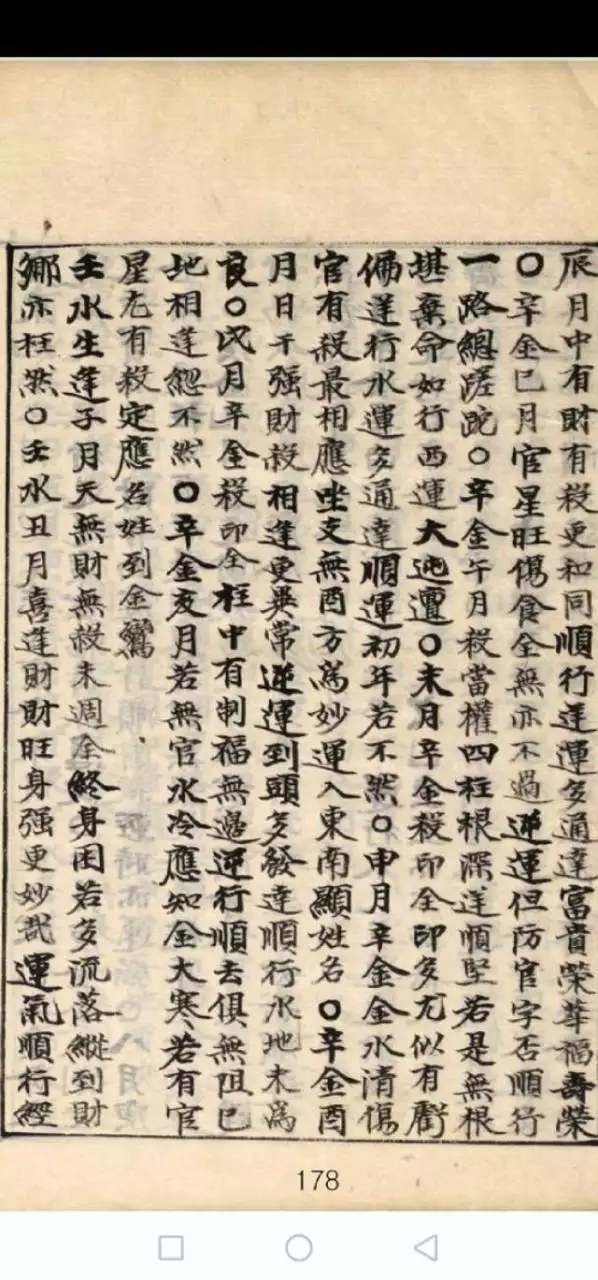 辰月中有財有殺更和同順行逆運多通達富貴榮華福壽榮
〇辛金巳月官星旺傷食全無亦不過逆運但防官字否順行
一路總蹉跎〇辛金午月殺當權四柱根深逆順堅若是無根
堪棄命如行西運大迍邅〇未月辛金殺印全印多尤似有虧
偏逆行水運多通達順運初年若不然〇申月辛金金水清傷
官有殺最相應坐支無酉方為妙運入東南顯姓名〇辛金酉
月日干强財殺相逢更異常逆運到頭多發達順行水地未為
良〇戌月辛金殺印全柱中有制福無邊逆行順去俱無阻巳
地相逢㧾不然〇辛金亥月若無官水冷應知金大寒若有官
星尤有殺定應名姓到金鸞
壬水生逢子月天無財無殺未週全終身困若多流落縱到財
鄉亦枉然〇壬水丑月喜逢財財旺身强更妙哉運氣順行經
178